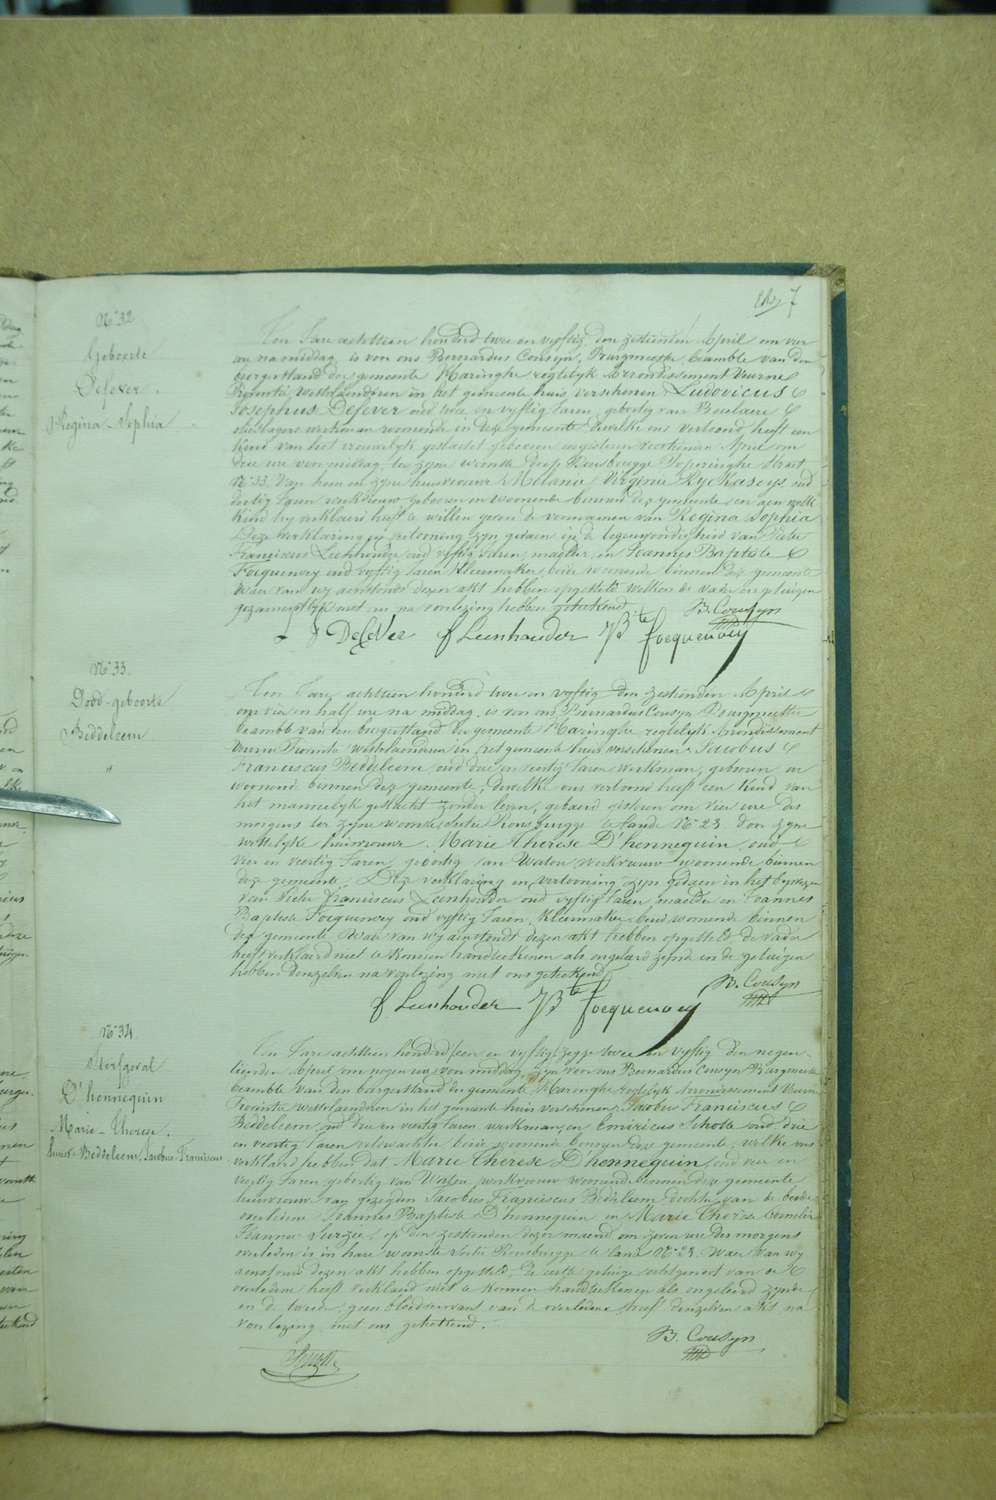 7
N° 32
Geboorte
Defever.
Regina-Sophia
Een Jare achttien honderd twee en vyftig den zestienden April om vier
ure na middag, is voor ons Bernardus Cousyn, Burgmeester beambte van den
burgerstand der gemeente Haringhe regtelyk Arrondissement Veurne
Provintie Westvlaendren in het gemeente huis verschenen Ludovicus
Josephus Defever oud twee en vyftig Jaren, gebortig van
werkman woonende in deze gemeente dewelke ons vertoond heeft een
kind van het vrouwelyk geslacht geboren April om
dry ure voor middag ter zyne woonste dorp Rousbrugge Poperinghe Straet
N° 33. van hem en zyne huisvrouwe Melanie Virginie Ryckaseys oud
dertig Jaren werkvrouw geboren en woonende binnen deze gemeente en aen welk
kind hy verklaerd heeft te willen geven de voornamen van Regina Sophia
Deze verklaering en vertooning zyn gedaen in de tegenwoordigheid van Pieter
Franciscus Leenhouder oud vyftig Jaren, maelder, en Joannes Baptiste
Focquenoey oud vyftig Jaren Kleermaker beide woonende binnen deze gemeente
Waer van wy aenstonds dezen akt hebben opgesteld welken de vader en getuigen
gezamentlyk met ons na voorlezing hebben geteekend.
B. Cousyn
DefeVer f Leenhouder JBte focquenoey
N° 33.
Dood-geboorte
Beddeleem
"
Een Jare achttien honderd twee en vyftig den zestienden April
om vier en half ure na middag, is voor ons Bernardus Cousyn Bourgmeester
beambte van den burgerstand der gemeente Haringhe regtelyk Arrondissement
Veurne Provintie Westvlaendren in het gemeente huis verschenen Jacobus
Franciscus Beddeleem, oud drie en veertig Jaren werkman, geboren en
woonend binnen deze gemeente, dewelke ons vertoond heeft een kind van
het mannelyk geslacht zonder leven, gebaerd gisteren om vier ure des
morgens ter zyne woonste sectie Rousbrugge te lande N° 23. door zyne
wettelyke huisvrouwe Marie Therese D'hennequin, oud
vier en veertig Jaren, gebortig van Watou werkvrouw woonende binnen
deze gemeente. Deze verklaering en vertooning zyn gedaen in het bywezen
van Pieter Franciscus Leenhouder oud vyftig Jaren maelder en Joannes
Baptiste Focquenoey oud vyftig Jaren, Kleermaker beide woonende binnen
deze gemeente Waer van wy aenstonds dezen akt hebben opgesteld de vader
heeft verklaerd niet te konnen handteekenen als ongeleerd zynde en de getuigen
hebben denzelven na voorlezing met ons geteekend.
B. Cousyn
f Leenhouder JBte focquenoey
N° 34.
Sterfgeval
D'hennequin
Marie-Therese.
huisv. Beddeleem, Jacobus-Franciscus
Een Jare achttien honderd een en vyftig zegge twee en vyftig den negen-
tienden April om negen ure voor middag, zyn voor ons Bernardus Cousyn Burgmeester
beambte van den burgerstand der gemeente Haringhe regtelyk Arrondissement Veurne
Provintie Westvlaendren in het gemeente huis verschenen Jacobus Franciscus
Beddeleem, oud drie en veertig Jaren werkman, en Emericus Schotte oud drie
en veertig Jaren veldwachter beide woonende binnen deze gemeente, welke ons
verklaerd hebben dat Marie Therese D'hennequin, oud vier en
veertig Jaren gebortig van Watou, werkvrouw woonende binnen deze gemeente
huisvrouw van gezegden Jacobus Franciscus Beddeleem dochter van de beide
overledene Joannes Baptiste D'hennequin en Marie Therese Cornelie
Joanna, op den zestienden dezer maend om zeven ure des morgens
overleden is in hare woonste sectie Rousbrugge te lande N° 23. Waer van wy
aenstonds dezen akt hebben opgesteld, de eerste getuige echtgenoot van de
overledene heeft verklaerd niet te konnen handteekenen als ongeleerd zynde
en de tweede geen bloedverwant van de overledene heeft denzelven akt na
voorlezing met ons geteekend.
B. Cousyn